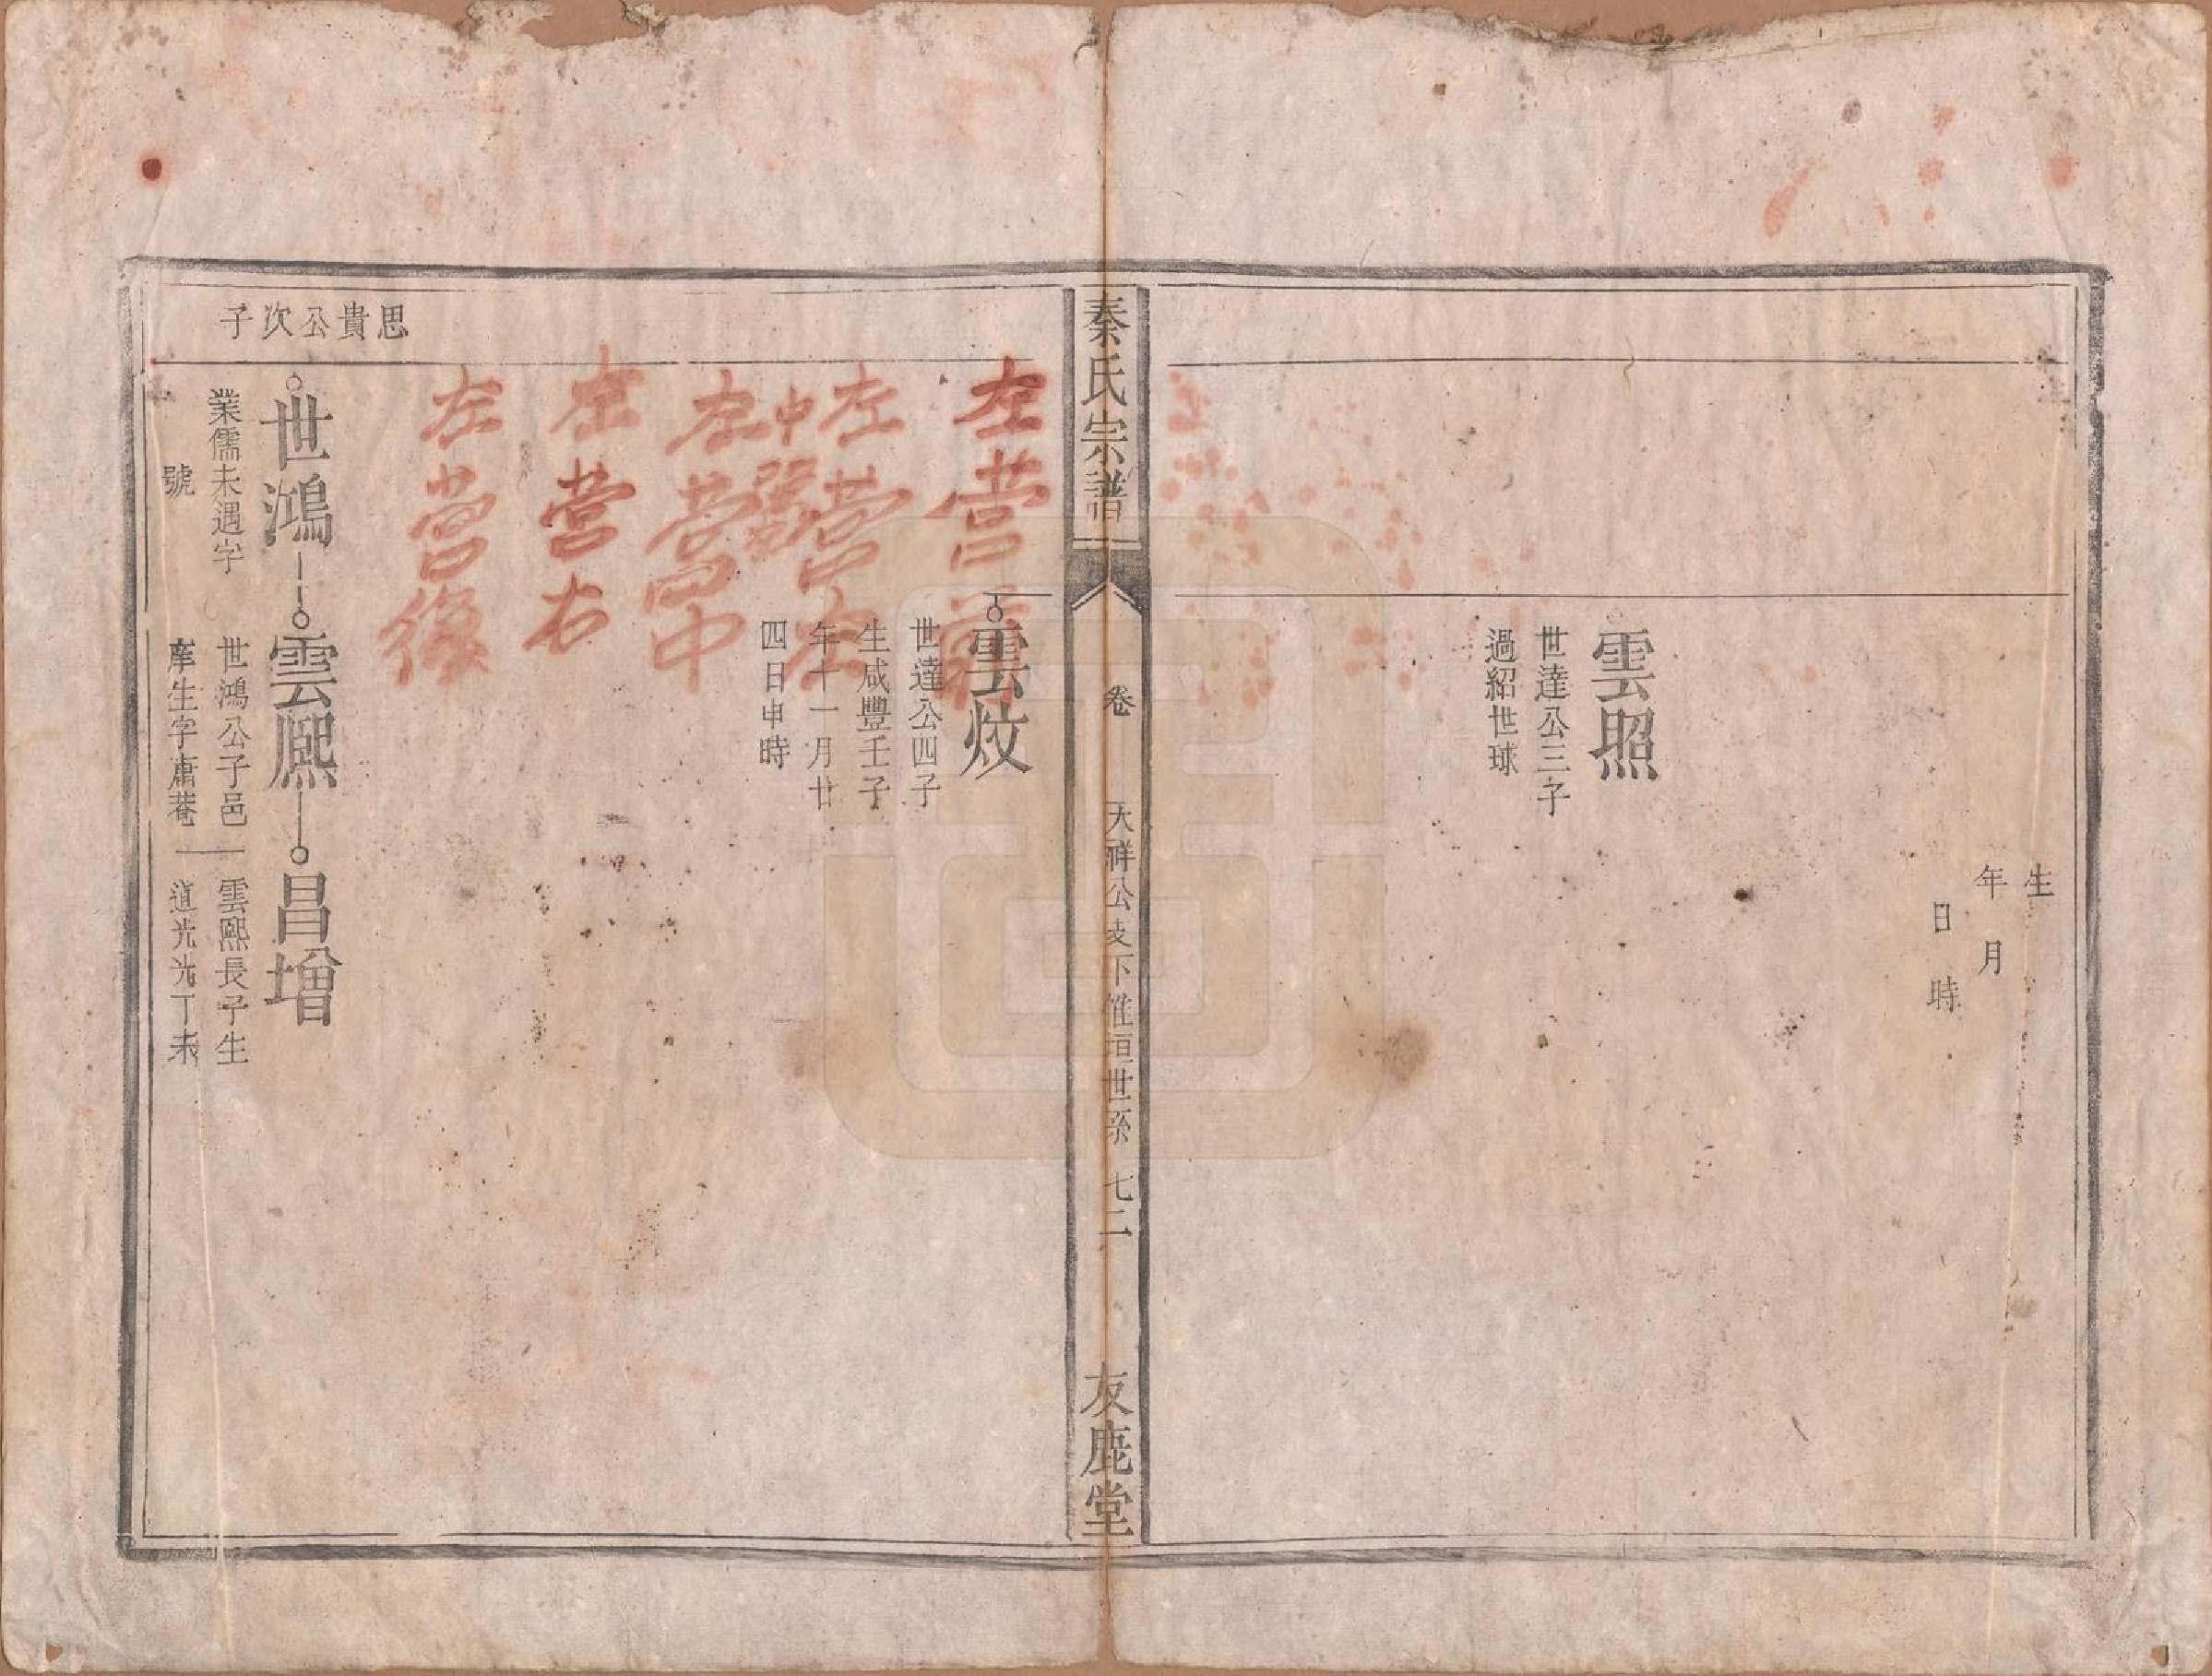 生
年　月
日　時
雲照
世達公三子
過紹世球
秦氏宗譜
卷
天祥公支下惟垣世系　七二
友鹿堂
雲炆
世達公四子
生咸豐壬子
年十一月廿
四日申時
左营
左营左
中
左营中
左营右
左营後
思貴公次子
世鴻
業儒未遇字
號
雲熈
世鴻公子邑
庠生字肅菴
昌增
雲熈長子生
道光光丁未